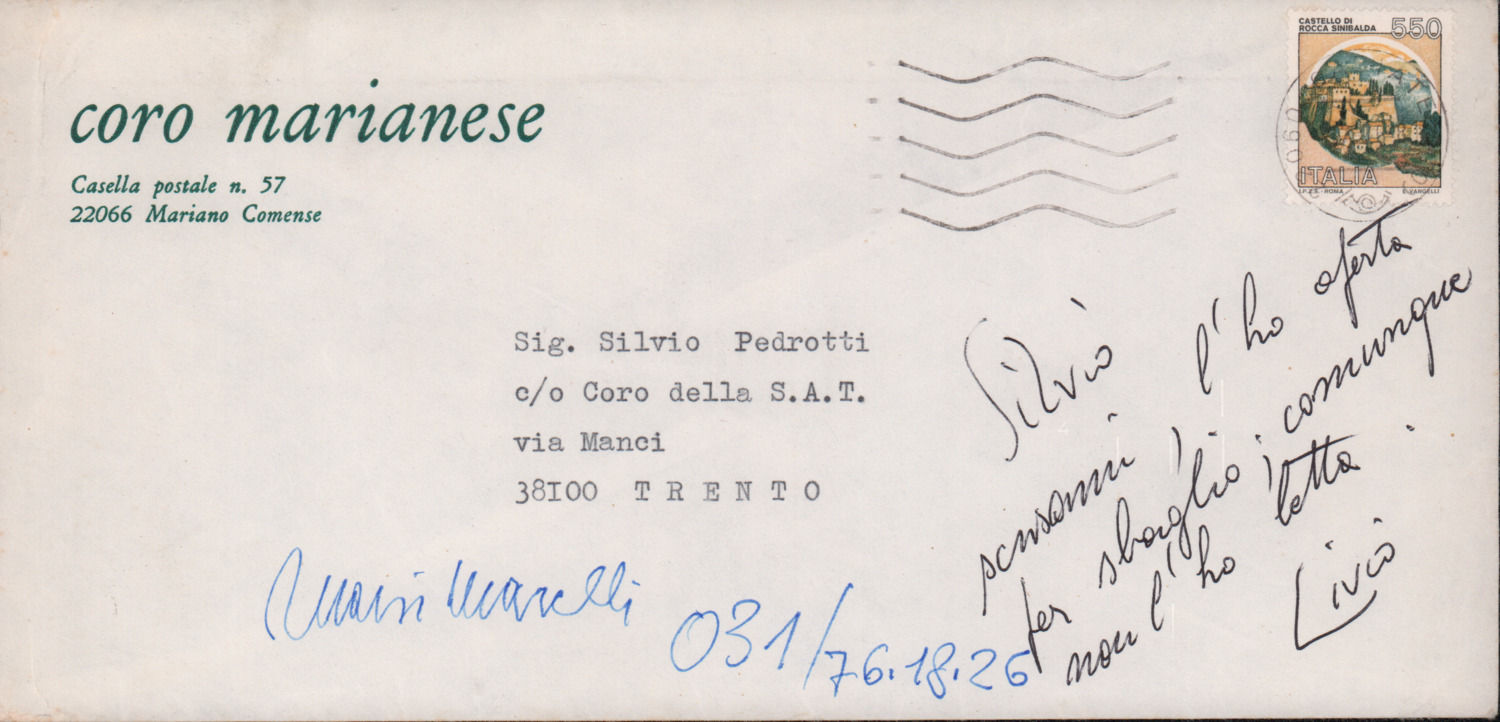 coro marianese
Casella postale n. 57
22066 Mariano Comense
CASTELLO DI
ROCCA SINIBALDA
550
ITALIA
I.P.Z.S. - ROMA E. VANGELLI
Sig. Silvio Pedrotti
c/o Coro della S.A.T.
via Manci
38100 TRENTO
Silvio
scusami l'ho aperta
per sbaglio, comunque
non l'ho letta.
Livio
Marelli
031/76.18.26